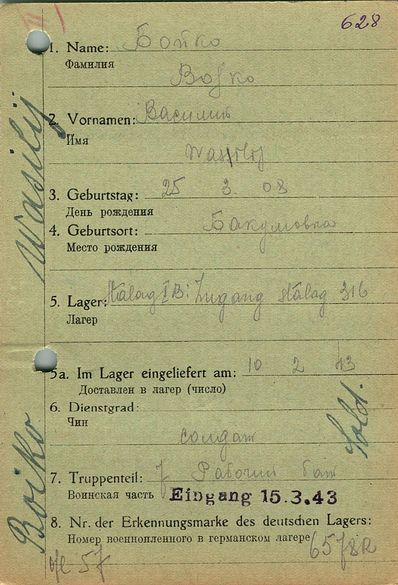 628
1. Name: Бойко
Фамилия
Bojko
2. Vornamen: Василий
Имя
Wassilij
3. Geburtstag: 25 3. 08
День рождения
4. Geburtsort: Бакумовка
Место рождения
5. Lager: Stalag I B; Zugang Stalag 316
Лагер
5a. Im Lager eingeliefert am: 10 2 43
Доставлен в лагер (число)
6. Dienstgrad:
Чин
солдат Sold.
7. Truppenteil: Рабочий бат
Воинская часть Eingang 15.3.43
8. Nr. der Erkennungsmarke des deutschen Lagers:
Номер военнопленного в германском лагере
Boiko Wasilij